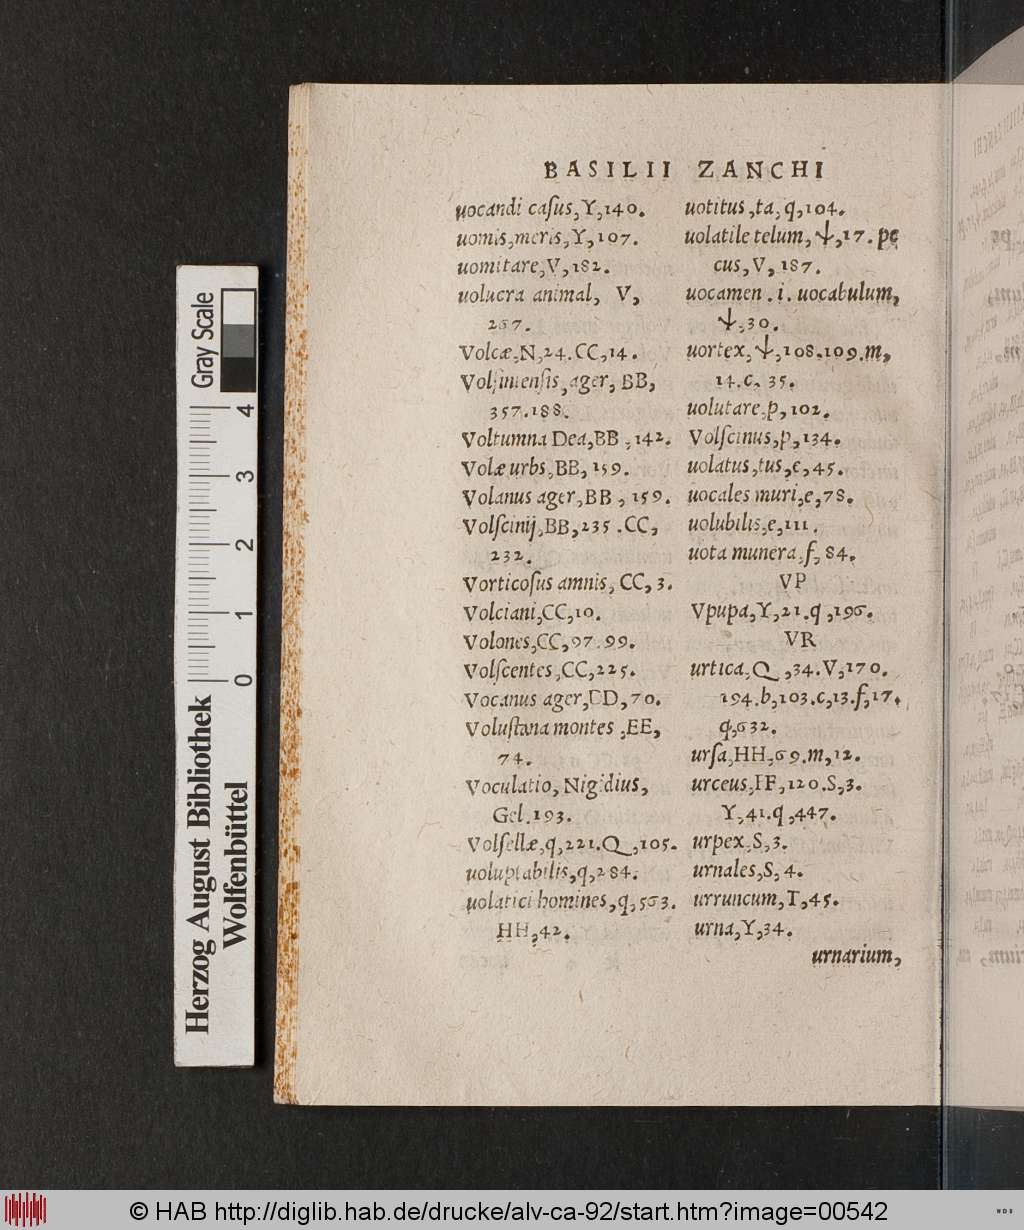 BASILII ZANCHI
uocandi caſus, Y, 140.
uomis, meris, Y, 107.
uomitare, V, 182.
uolucra animal, V,
267.
Volcæ, N, 24. CC, 14.
Volſinienſis, ager, BB,
357. 188.
Voltumna Dea, BB, 142.
Volæ urbs, BB, 159.
Volanus ager, BB, 159.
Volſcinij, BB, 235. CC,
232.
Vorticoſus amnis, CC, 3.
Volciani, CC, 10.
Volones, CC, 97. 99.
Volſcentes, CC, 225.
Vocanus ager, DD, 70.
Voluſtana montes, EE,
74.
Voculatio, Nigidius,
Gel. 193.
Volſellæ, q, 221. Q, 105.
uoluptabilis, q, 284.
uolatici homines, q, 563.
HH, 42.
uotitus, ta, q, 104.
uolatile telum, Ѱ, 17. pe
cus, V, 187.
uocamen .i. uocabulum,
Ѱ, 30.
uortex, Ѱ, 108. 109. m,
14. c, 35.
uolutare, p, 102.
Volſcinus, p, 134.
uolatus, tus, e, 45.
uocales muri, e, 78.
uolubilis, e, 111.
uota munera, f, 84.
VP
Vpupa, Y, 21. q, 196.
VR
urtica, Q, 34. V, 170.
194. b, 103. c, 13. f, 17.
q, 632.
urſa, HH, 69. m, 12.
urceus, FF, 120. S, 3.
Y, 41. q, 447.
urpex, S, 3.
urnales, S, 4.
urruncum, T, 45.
urna, Y, 34.
urnarium,
Gray Scale
0 1 2 3 4
Herzog August Bibliothek
Wolfenbüttel
© HAB http://diglib.hab.de/drucke/alv-ca-92/start.htm?image=00542